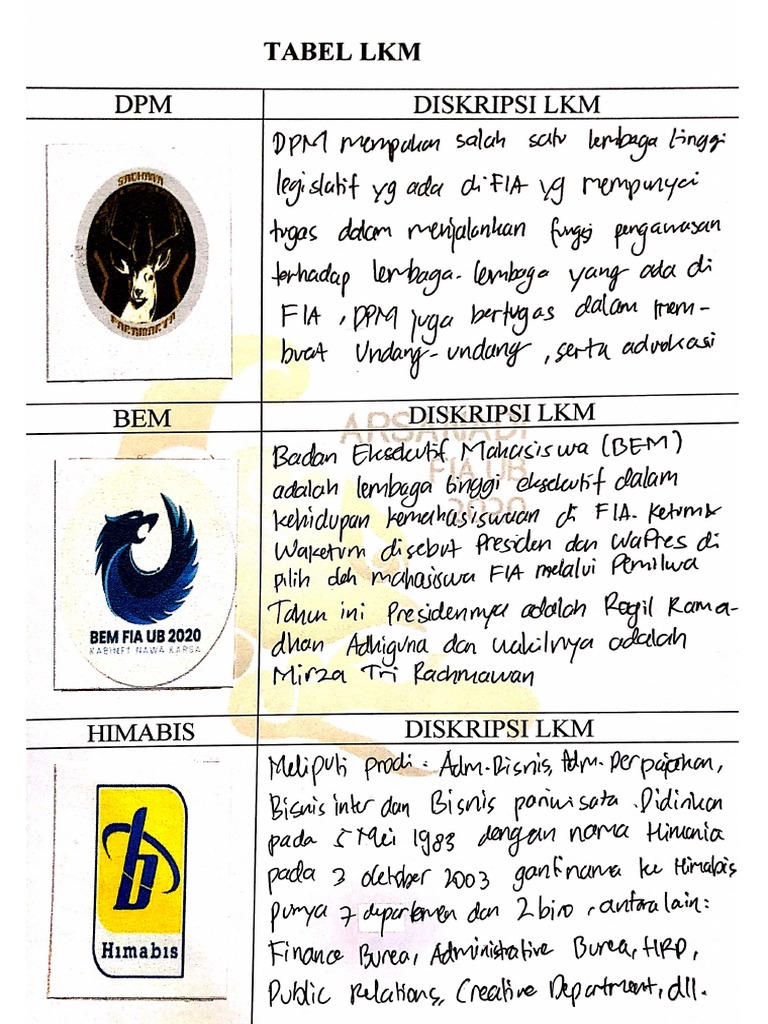 TABEL LKM
DPM
DISKRIPSI LKM
DPM merupakan salah satu lembaga tinggi
legislatif yg ada di FIA yg mempunyai
tugas dalam menjalankan fungsi pengawasan
terhadap lembaga-lembaga yang ada di
FIA, DPM juga bertugas dalam mem-
buat Undang-undang, serta advokasi
BEM
DISKRIPSI LKM
ARSANADI
FIA UB
2020
BEM FIA UB 2020
KABINET NAWA KARSA
Badan Eksekutif Mahasiswa (BEM)
adalah lembaga tinggi eksekutif dalam
kehidupan kemahasiswaan di FIA. Ketum &
Waketum disebut Presiden dan WaPres di
pilih oleh mahasiswa FIA melalui Pemilwa
Tahun ini Presidennya adalah Rogil Rama-
dhan Adhiguna dan wakilnya adalah
Mirza Tri Rachmawan
HIMABIS
DISKRIPSI LKM
Himabis
Meliputi prodi: Adm. Bisnis, Adm. Perpajakan,
Bisnis inter dan Bisnis pariwisata. Didirikan
pada 5 Mei 1983 dengan nama Himania
pada 3 Oktober 2003 ganti nama ke Himabis
punya 7 departemen dan 2 biro, antara lain:
Finance Burea, Administrative Burea, HRD,
Public Relations, Creative Department, dll.